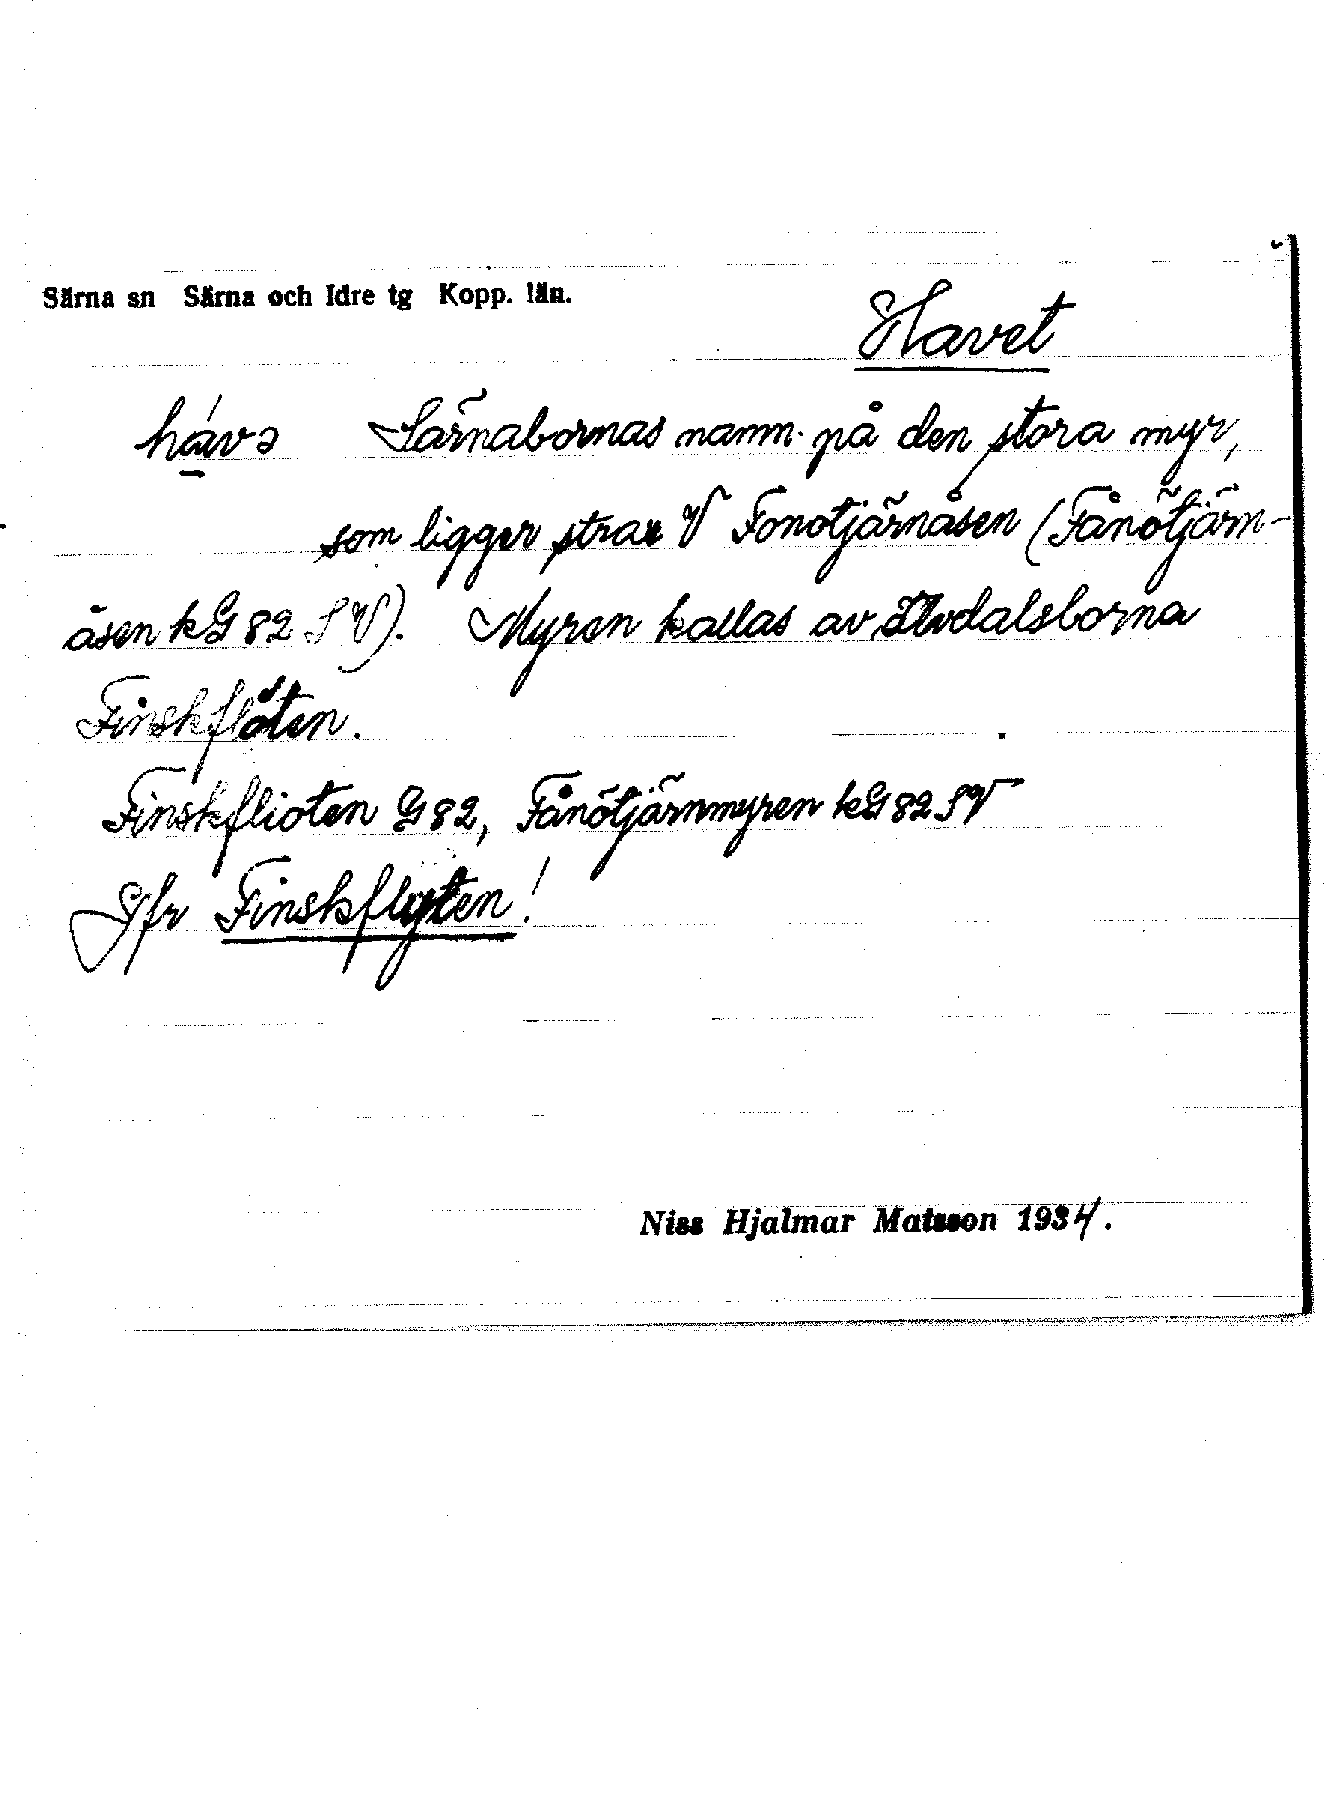 Särna sn Särna och Idre tg Kopp. län.
Havet
hávə Särnabornas namn på den stora myr,
som ligger strax V Fonotjärnåsen (Fånötjärn-
åsen kG 82 SV). Myren kallas av Älvdalsborna
Finskflöten.
Finskflioten G 82, Fånötjärnmyren kG 82 SV
Jfr Finskflyten!
Niss Hjalmar Matsson 1934.